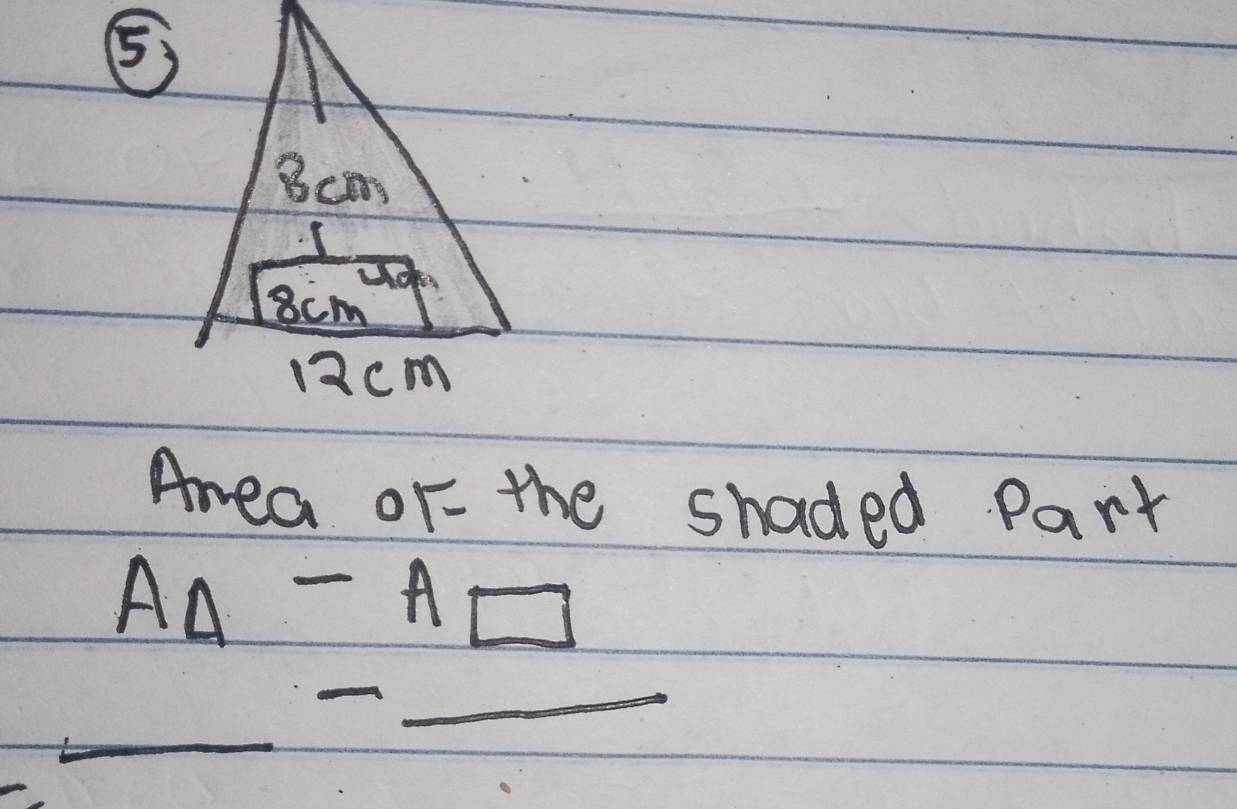 5
8cm
4cm
8cm
12cm
Area of the shaded Part
A△ - A▭
-